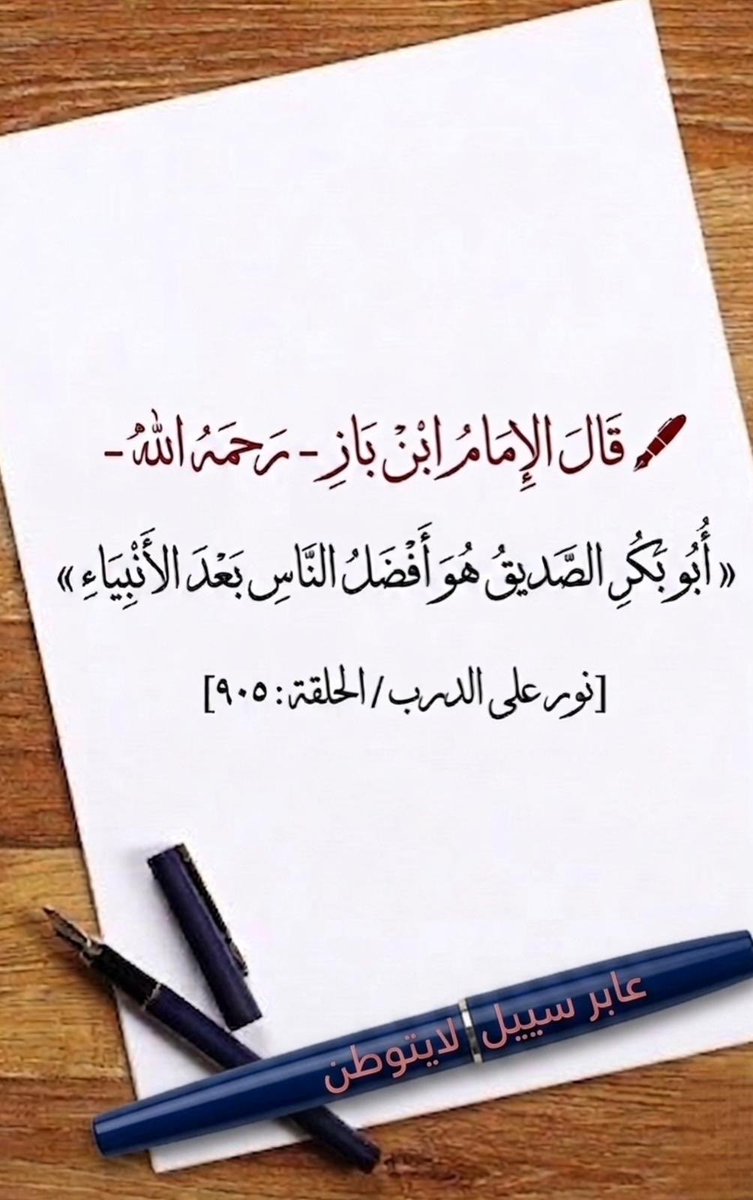 قَالَ الإِمَامُ ابْنْ بَازِ - رَحِمَهُ اللهُ -
« أُبُو بَكُرِ الصَّديقُ هُوَ أَفْضَلُ النَّاسِ بَعْدَ الأَنْبِيَاءِ »
[نور على الدرب / الحلقة : ٩٠٥]
عابر سبيل لايتوطن